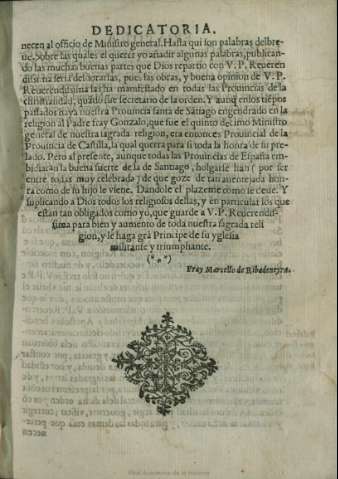 DEDICATORIA.
necen al officio de Ministro general. Hasta qui son palabras del bre-
ue. Sobre las quales el querer yo añadir algunas palabras, publican-
do las muchas buenas partes que Dios repartio con V. P. Reueren
dissima seria desdorarlas, pues las obras, y buena opinion de V. P.
Reuerendissima las ha manifestado en todas las Prouincias de la
christiandad, quãdo fue secretario de la ordẽ. Y aunq̃ en los tiẽpos
passados aya nuestra Prouincia santa de Sãtiago engendrado en la
religion al Padre fray Gonzalo, que fue el quinto decimo Ministro
general de nuestra sagrada religion, era entonces Prouincial de la
Prouincia de Castilla, la qual querra para si toda la honra de su pre-
lado. Pero al presente, aunque todas las Prouincias de España em-
bidiaran la buena suerte de la de Santiago, holgarse han por ser
entre todas muy celebrada, de que goze de tan auentejada hon-
ra como de su hijo le viene. Dandole el plazeme como se deue. Y
suplicando a Dios todos los religiosos dellas, y en particular los que
estan tan obligados como yo, que guarde a V. P. Reuerendis-
sima para bien y aumento de toda nuestra sagrada reli
gion, y le haga grã Principe de su yglesia
militante y triumphante.
(* * *)
Fray Marcello de Ribadeneyra.
Real Academia de la Historia